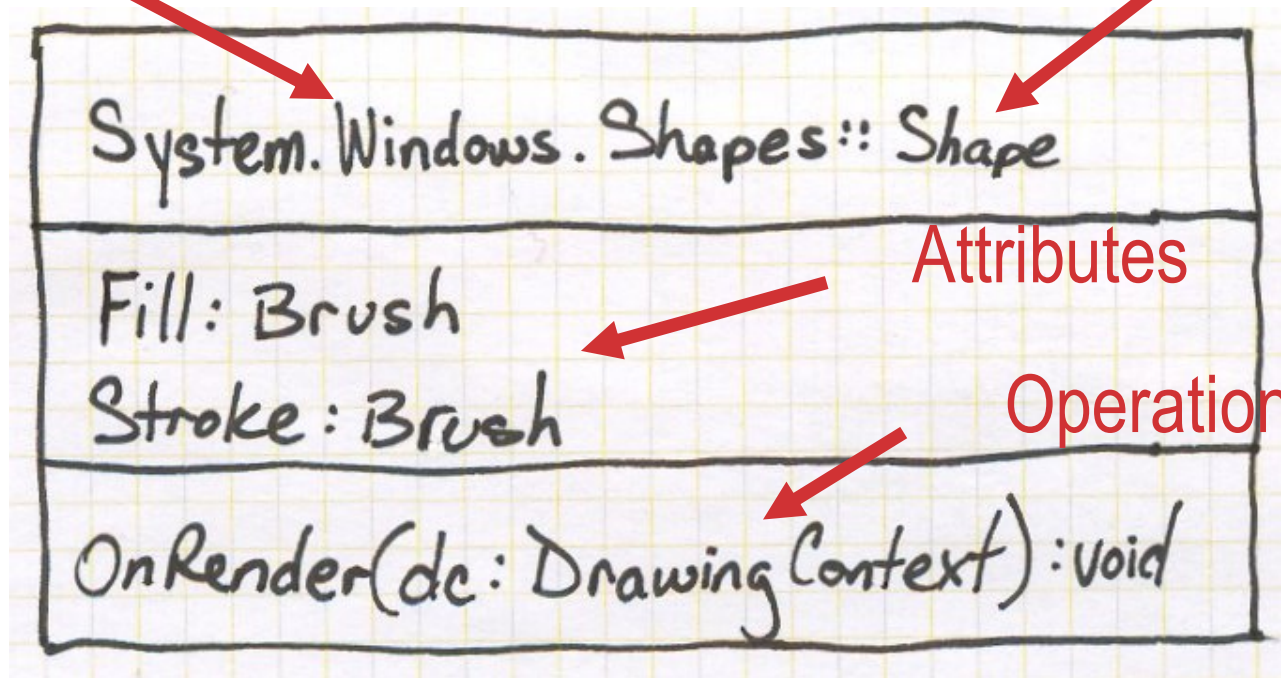 System.Windows.Shapes::Shape
Attributes
Fill: Brush
Operation
Stroke: Brush
OnRender(dc: DrawingContext): void